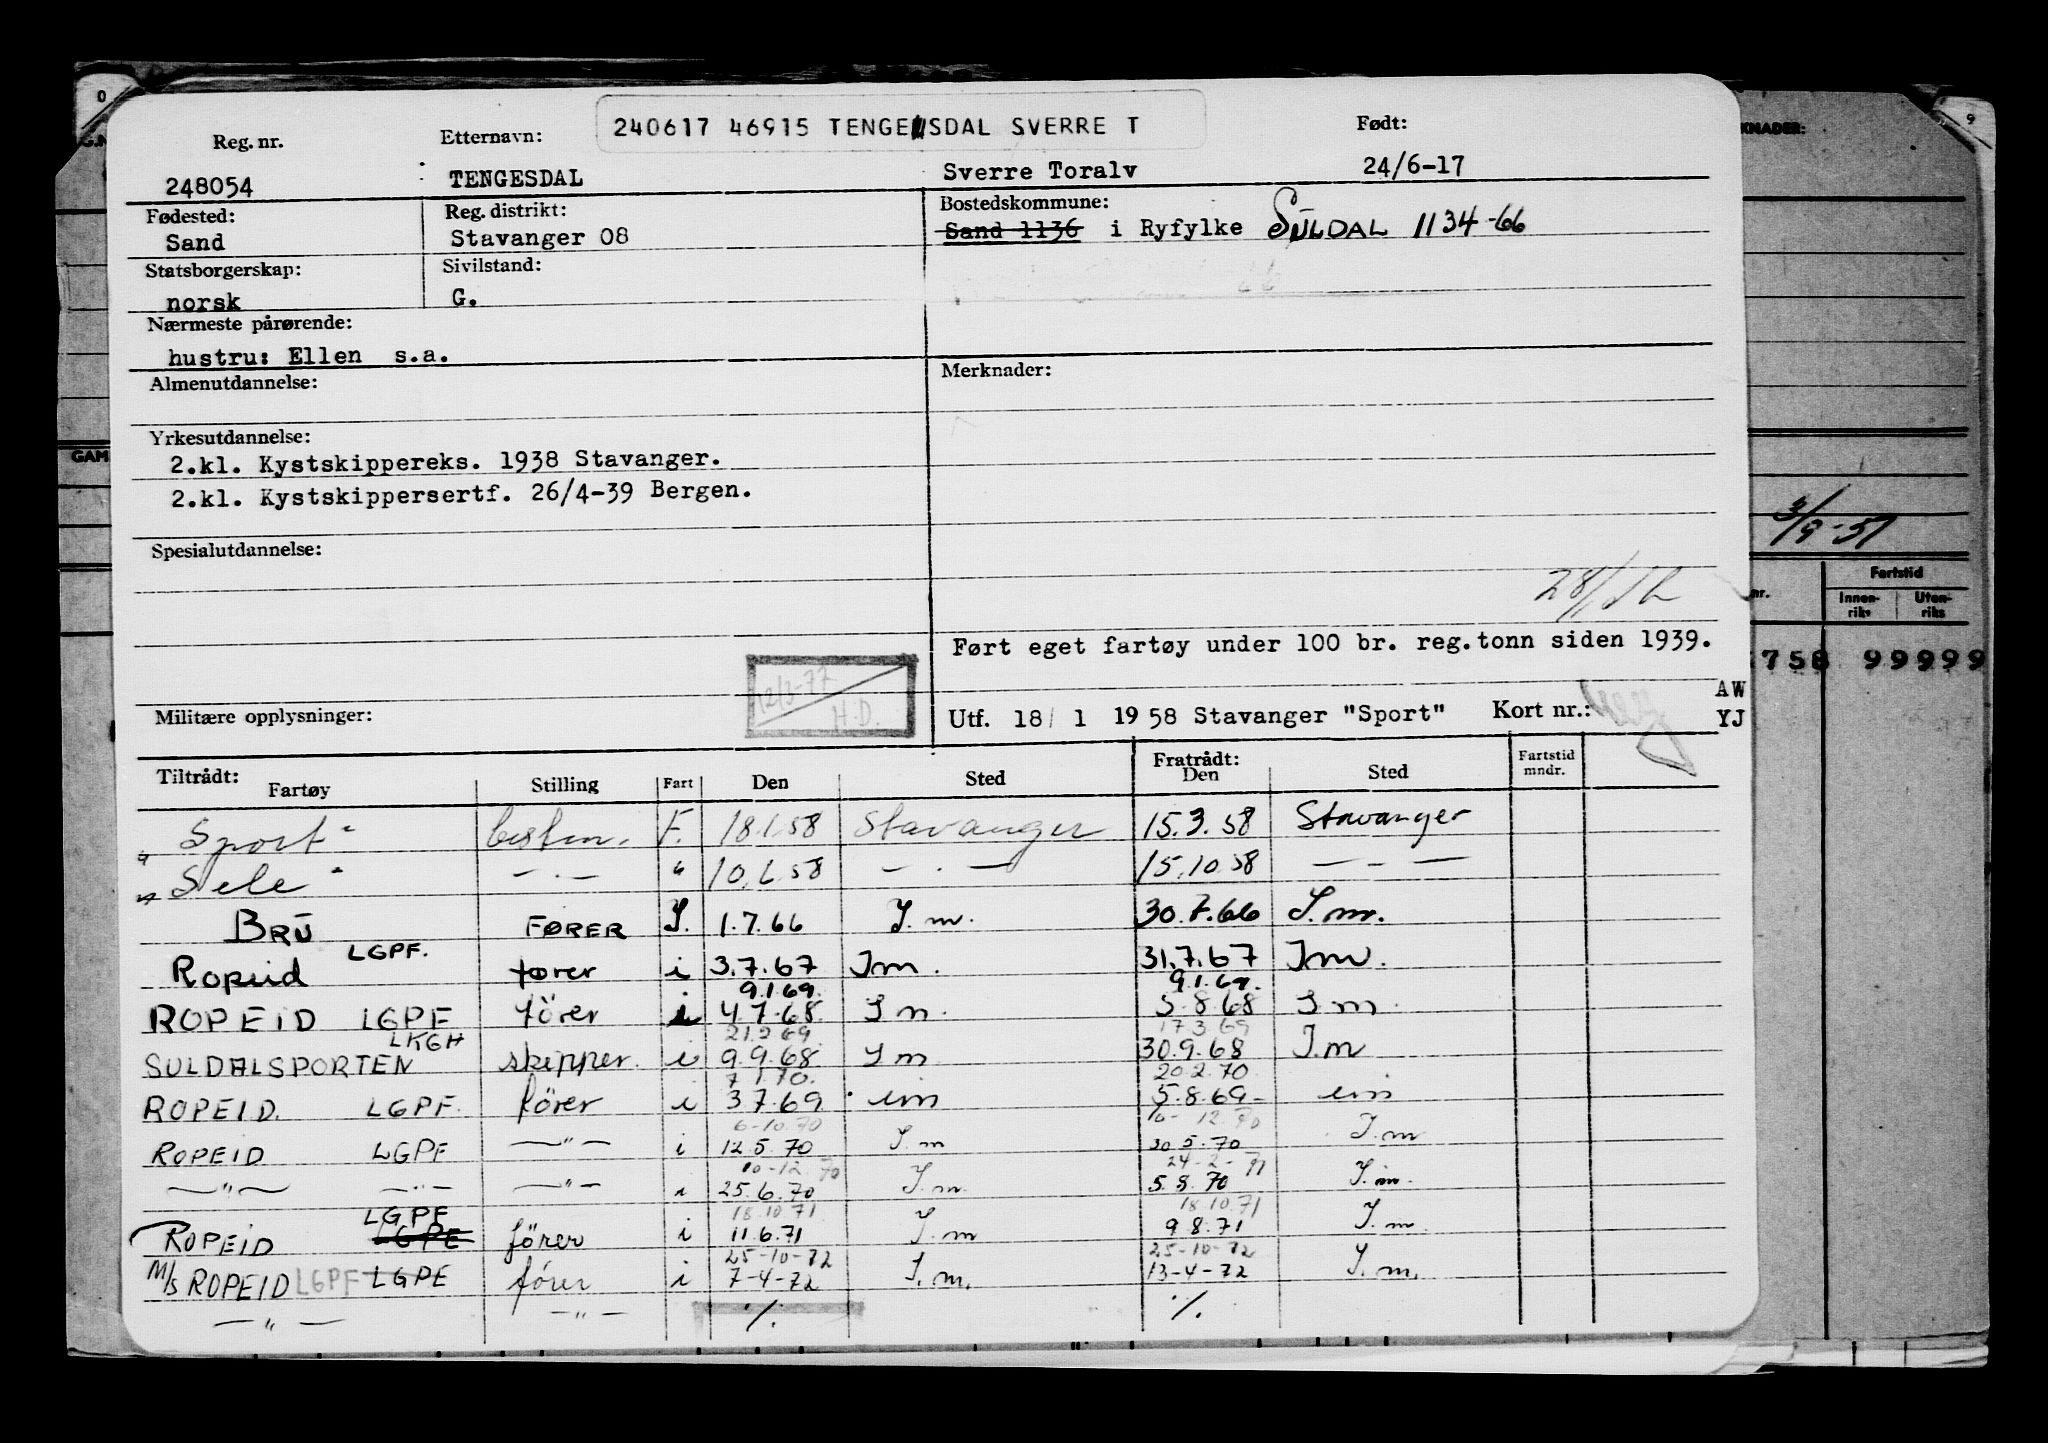 240617 46915 TENGESDAL SVERRE T
Reg. nr. Etternavn: Født:
248054 TENGESDAL Sverre Toralv 24/6-17
Fødested: Reg. distrikt: Bostedskommune:
Sand Stavanger 08 Sand 1136 i Ryfylke SULDAL 1134-66
Statsborgerskap: Sivilstand:
norsk G.
Nærmeste pårørende:
hustru: Ellen s.a.
Almenutdannelse: Merknader:
Yrkesutdannelse:
2.kl. Kystskippereks. 1938 Stavanger.
2.kl. Kystskippersertf. 26/4-39 Bergen.
Spesialutdannelse:
Ført eget fartøy under 100 br. reg.tonn siden 1939.
12/3-77
H.D.
Militære opplysninger: Utf. 18/ 1 1958 Stavanger "Sport" Kort nr.:
AW
YJ
Tiltrådt: Fratrådt: Fartstid
Fartøy Stilling Fart Den Sted Den Sted mndr.
"Sport" bestm. F. 18.1.58 Stavanger 15.3.58 Stavanger
"Sele" — . — " 10.6.58 — . — 15.10.58 — . —
BRU FØRER I. 1.7.66 I.m. 30.7.66 I.m.
Ropeid LGPF. fører i 3.7.67 Im. 31.7.67 Im.
9.1.69. 9.1.69.
ROPEID LGPF fører i 4.7.68 I m. 5.8.68 I m
LKGH 21.2.69 17.3.69
SULDALSPORTEN skipper. i 9.9.68 I m 30.9.68 I.m
7.1.70. 20.2.70
ROPEID. LGPF. fører i 3.7.69 im 5.8.69 im
6-10.70 16- 12.70
ROPEID LGPF —"— i 12.5.70 I.m 30.5.70 I.m
10-12.70 24-2-71
—"— —"— —"— i 25.6.70 I.m. 5.8.70 I.m.
LGPF 18.10.71 18.10.71
ROPEID LGPE fører i 11.6.71 I.m 9.8.71 I.m
25-10-72 25-10-72
M/S ROPEID LGPF LGPE fører i 7-4-72 I.m. 13-4-72 I.m.
—"— —"— ./. ./.
0
9
GAM
KNADER:
3/9-51
nr. Fartstid
Innen-riks Uten-riks
758 99999